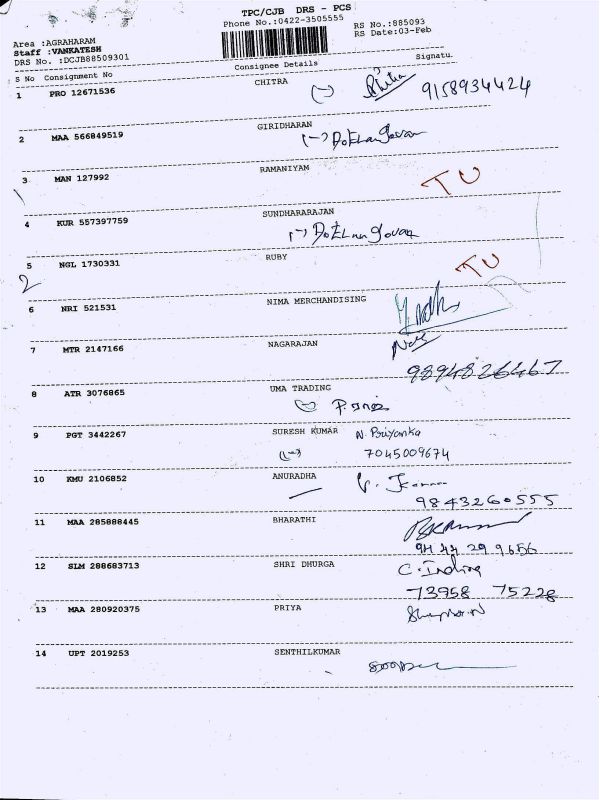 TPC/CJB DRS - PCS
Phone No.:0422-3505555
RS No.:885093
RS Date:03-Feb
Area :AGRAHARAM
Staff :VANKATESH
DRS No. :DCJB88509301
Consignee Details
Signatu.
S No Consignment No
1 PRO 12671536 CHITRA 9158934424
2 MAA 566849519 GIRIDHARAN
(-) DoElangovan
3 MAN 127992 RAMANIYAM TU
4 KUR 557397759 SUNDHARARAJAN
(-) DoElangovan
5 NGL 1730331 RUBY TU
2
6 NRI 521531 NIMA MERCHANDISING
7 MTR 2147166 NAGARAJAN
9894826467
8 ATR 3076865 UMA TRADING
9 PGT 3442267 SURESH KUMAR N. Priyanka
(-) 7045009674
10 KMU 2106852 ANURADHA
9843260555
11 MAA 285888445 BHARATHI
94 44 29 9656
12 SLM 288683713 SHRI DHURGA C. Indira
73958 75228
13 MAA 280920375 PRIYA
14 UPT 2019253 SENTHILKUMAR